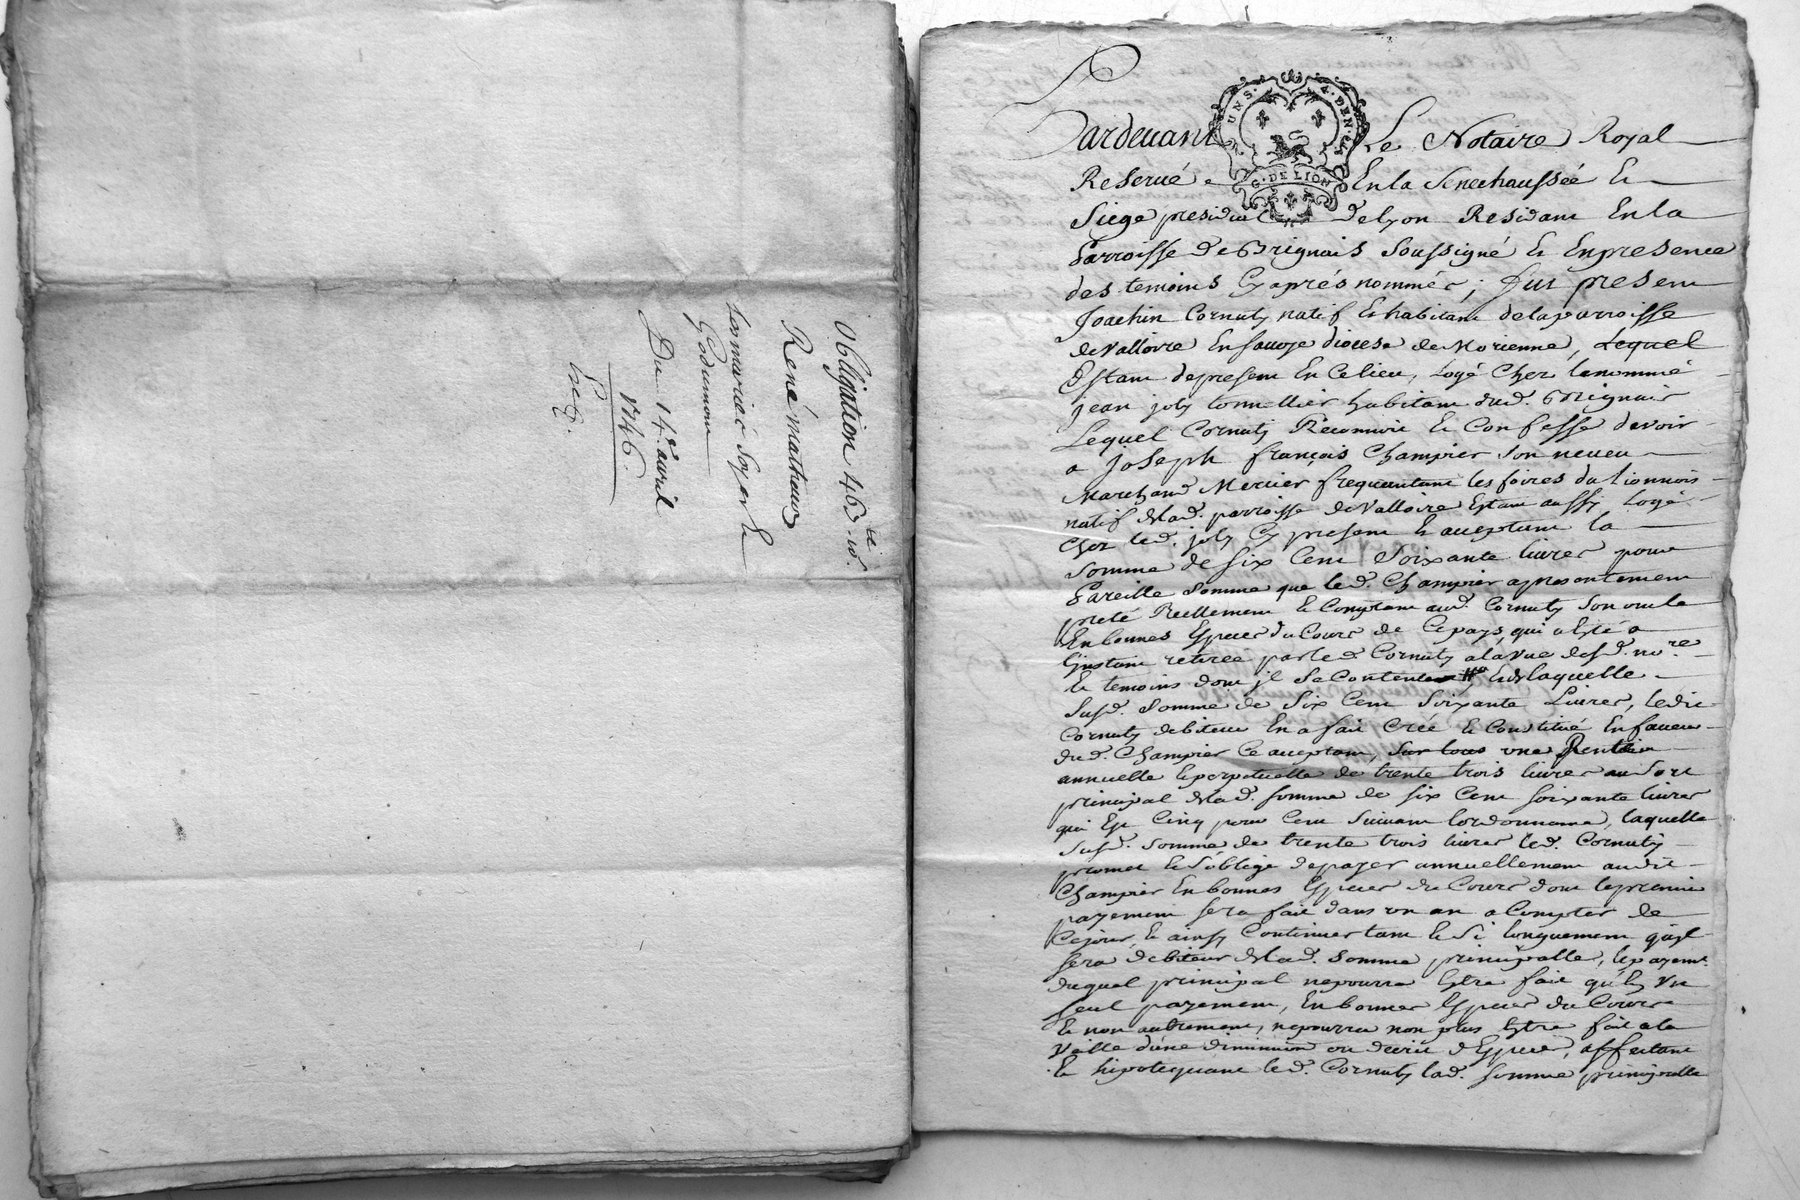 Obligation 46
René matheux
Du 14e avril
1746.
UN S. 4. DEN. G. DE LION
Pardevant Le Notaire Royal
Reservé En la Senechaussée Et
Siege presidial de Lyon Residant En la
Parroisse de Grignais Soussigné Et En presence
des temoins Cy aprés nommés; fut present
Joachin Cornuty natif Et habitant de la parroisse
de Valloire En Savoye diocese de Morienne, Lequel
Estant de present En Ce lieu, Logé Chez le nommé
jean joly tonnellier habitant dud. Grignais
Lequel Cornuty Reconnoit Et Confesse devoir
a Joseph françois Champier Son neveu
Marchand Mercier frequentant les foires du Lionnois
natif de lad. parroisse de Valloire Estant aussy Logé
Chez led. joly Cy present Et acceptant la
Somme de Six Cent Soixante livres pour
Pareille Somme que led. Champier a presentement
preté Reellement Et Comptant aud. Cornuty Son oncle
En bonnes Especes du Cours de Ce pays, qui a Esté a
L'instant retirée par led. Cornuty a la vue desd. nore
Et temoins dont il Se Contente Et de laquelle
Susd. Somme de Six Cent Soixante Livres, ledit
Cornuty debiteur En a fait Créé Et Constitué En faveur
dud. Champier Ce acceptant, une Rente
annuelle Et perpetuelle de trente trois livres au Sort
principal de lad. Somme de Six Cent Soixante livres
qui Est Cinq pour Cent Suivant l'ordonnance, laquelle
Susd. Somme de trente trois livres led. Cornuty
promet Et S'oblige de payer annuellement audit
Champier En bonnes Especes du Cours dont le premier
payement Sera fait dans un an a Compter de
Ce jour, Et ainsy Continuer tant Et Si longuement qu'il
Sera debiteur de lad. Somme principalle, le payemt.
duquel principal ne pourra Estre fait qu'En un
Seul payement, En bonnes Especes du Cours
Et non autrement, ne pourra non plus Estre fait a la
Veille d'une diminution ou decrit d'Especes, affectant
Et hipotequant led. Cornuty lad. Somme principalle